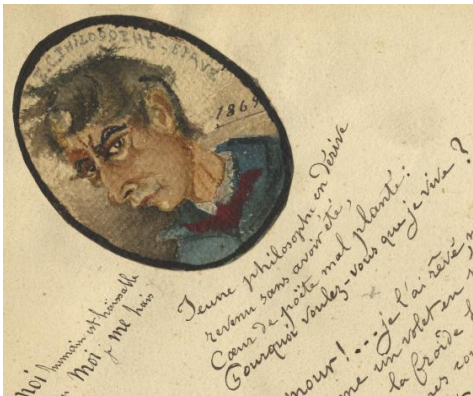 T. C. PHILOSOPHE - EPAVE
1869
Jeune philosophe en dérive
revenu sans avoir été,
Cœur de poëte mal planté:
Pourquoi voulez-vous que je vive ?
mour!... je l'ai rêvé
un volet en
la froide
moi humain est haïssable
moi je me hais